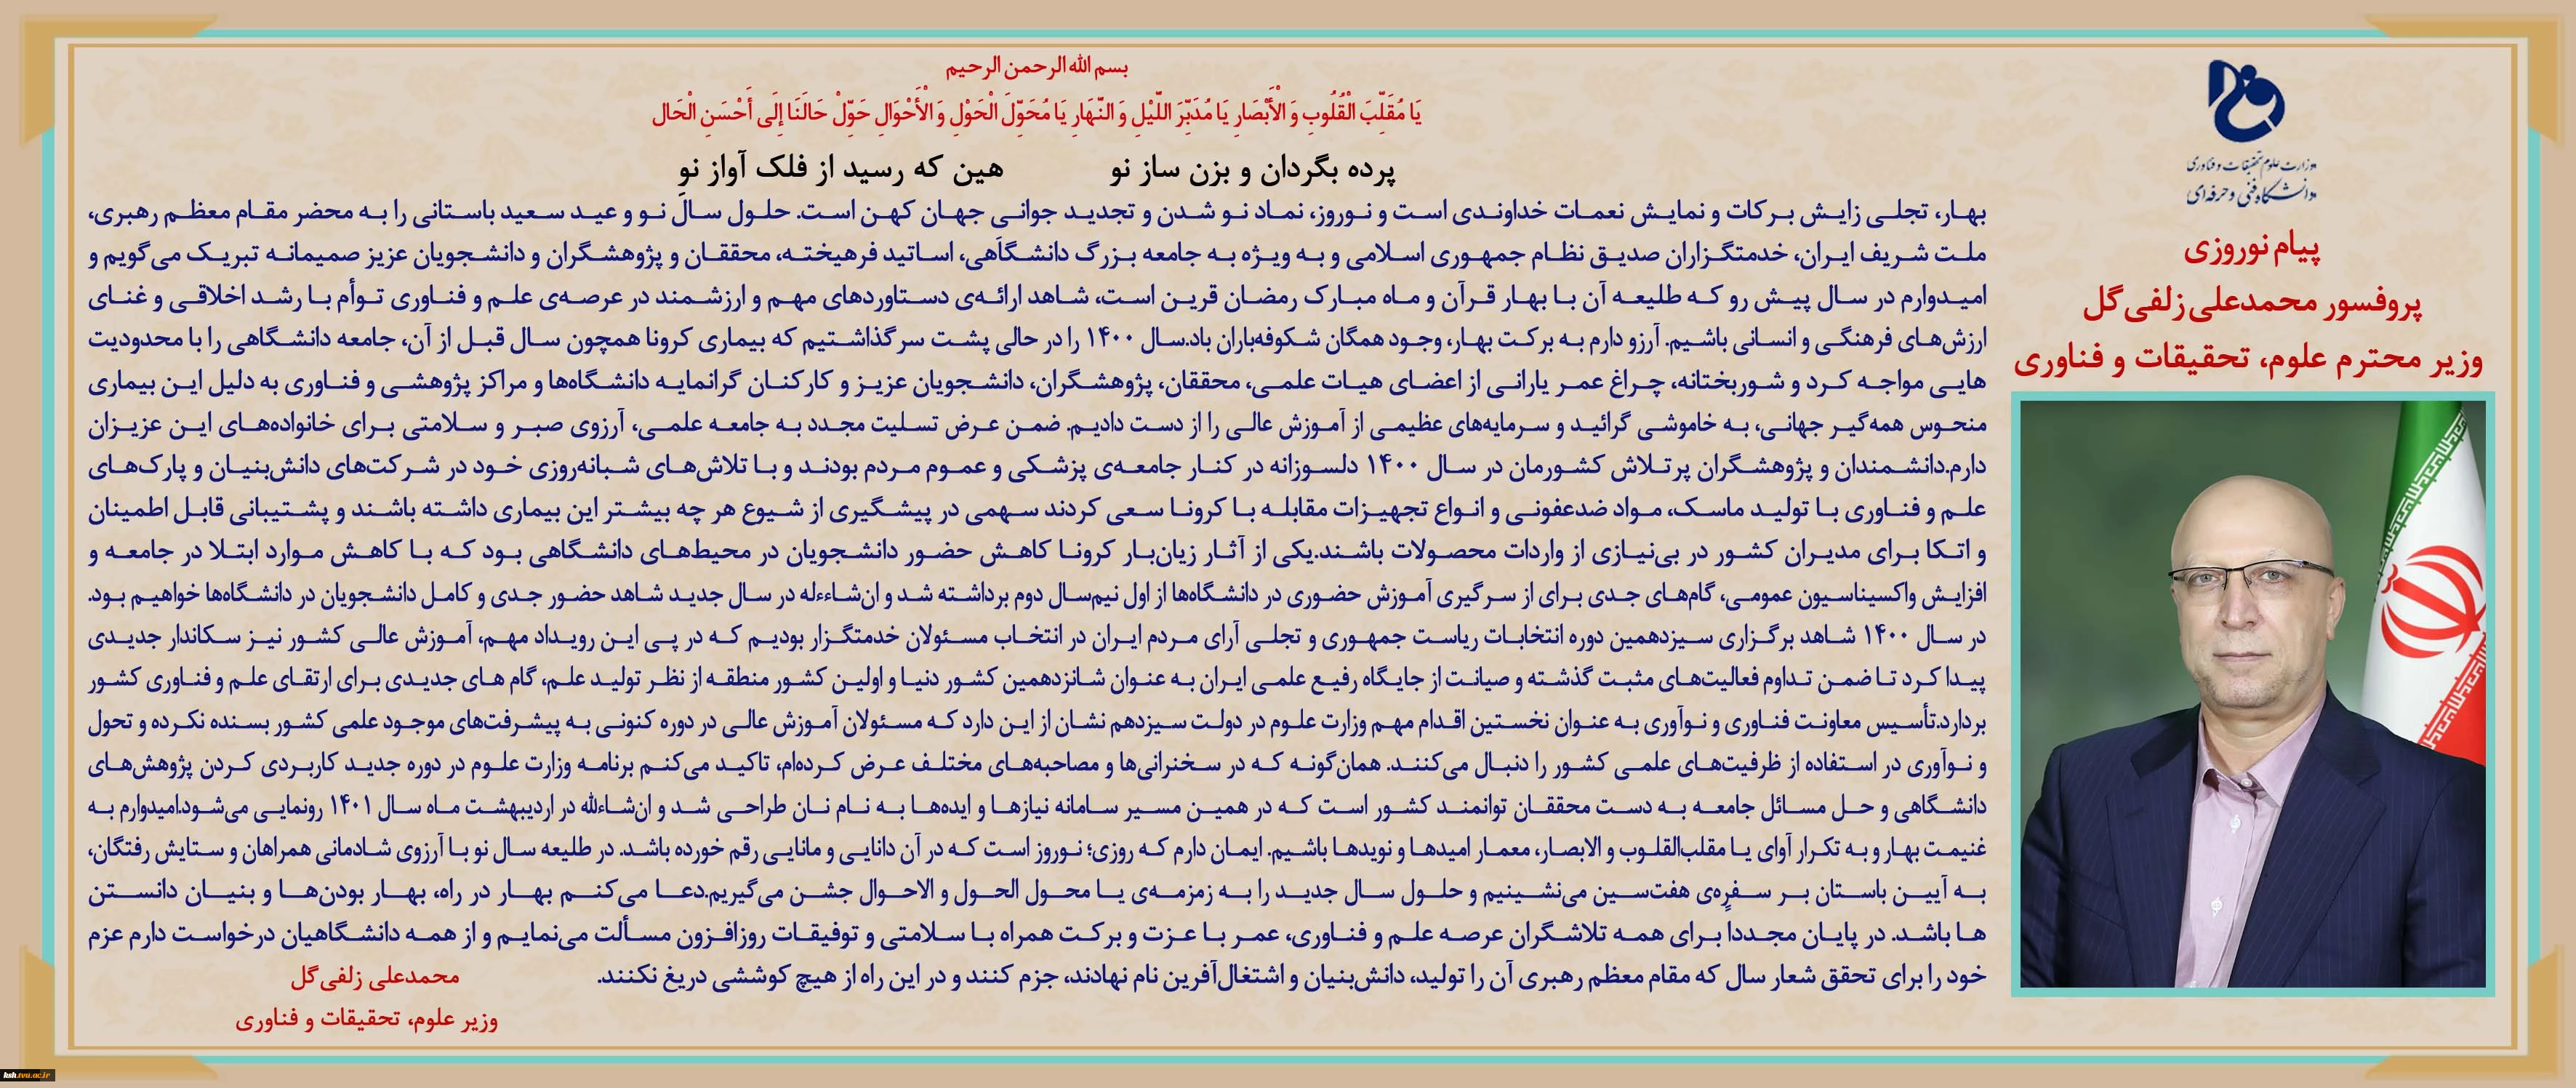 بسم الله الرحمن الرحیم
یَا مُقَلِّبَ الْقُلُوبِ وَ الْأَبْصَارِ یَا مُدَبِّرَ اللَّیْلِ وَ النَّهَارِ یَا مُحَوِّلَ الْحَوْلِ وَ الْأَحْوَالِ حَوِّلْ حَالَنَا إِلَی أَحْسَنِ الْحَال
پرده بگردان و بزن ساز نو هین که رسید از فلک آواز نو
وزارت علوم تحقیقات و فناوری
دانشگاه فنی و حرفه‌ای
پیام نوروزی
پروفسور محمدعلی زلفی‌گل
وزیر محترم علوم، تحقیقات و فناوری
بهار، تجلی زایش برکات و نمایش نعمات خداوندی است و نوروز، نماد نو شدن و تجدید جوانی جهان کهن است. حلول سال نو و عید سعید باستانی را به محضر مقام معظم رهبری،
ملت شریف ایران، خدمتگزاران صدیق نظام جمهوری اسلامی و به ویژه به جامعه بزرگ دانشگاهی، اساتید فرهیخته، محققان و پژوهشگران و دانشجویان عزیز صمیمانه تبریک می‌گویم و
امیدوارم در سال پیش رو که طلیعه آن با بهار قرآن و ماه مبارک رمضان قرین است، شاهد ارائه‌ی دستاوردهای مهم و ارزشمند در عرصه‌ی علم و فناوری توأم با رشد اخلاقی و غنای
ارزش‌های فرهنگی و انسانی باشیم. آرزو دارم به برکت بهار، وجود همگان شکوفه‌باران باد.سال ۱۴۰۰ را در حالی پشت سر گذاشتیم که بیماری کرونا همچون سال قبل از آن، جامعه دانشگاهی را با محدودیت
هایی مواجه کرد و شوربختانه، چراغ عمر یارانی از اعضای هیات علمی، محققان، پژوهشگران، دانشجویان عزیز و کارکنان گرانمایه دانشگاه‌ها و مراکز پژوهشی و فناوری به دلیل این بیماری
منحوس همه‌گیر جهانی، به خاموشی گرائید و سرمایه‌های عظیمی از آموزش عالی را از دست دادیم. ضمن عرض تسلیت مجدد به جامعه علمی، آرزوی صبر و سلامتی برای خانواده‌های این عزیزان
دارم.دانشمندان و پژوهشگران پرتلاش کشورمان در سال ۱۴۰۰ دلسوزانه در کنار جامعه‌ی پزشکی و عموم مردم بودند و با تلاش‌های شبانه‌روزی خود در شرکت‌های دانش‌بنیان و پارک‌های
علم و فناوری با تولید ماسک، مواد ضدعفونی و انواع تجهیزات مقابله با کرونا سعی کردند سهمی در پیشگیری از شیوع هر چه بیشتر این بیماری داشته باشند و پشتیبانی قابل اطمینان
و اتکا برای مدیران کشور در بی‌نیازی از واردات محصولات باشند.یکی از آثار زیان‌بار کرونا کاهش حضور دانشجویان در محیط‌های دانشگاهی بود که با کاهش موارد ابتلا در جامعه و
افزایش واکسیناسیون عمومی، گام‌های جدی برای از سرگیری آموزش حضوری در دانشگاه‌ها از اول نیم‌سال دوم برداشته شد و ان‌شاءءله در سال جدید شاهد حضور جدی و کامل دانشجویان در دانشگاه‌ها خواهیم بود.
در سال ۱۴۰۰ شاهد برگزاری سیزدهمین دوره انتخابات ریاست جمهوری و تجلی آرای مردم ایران در انتخاب مسئولان خدمتگزار بودیم که در پی این رویداد مهم، آموزش عالی کشور نیز سکاندار جدیدی
پیدا کرد تا ضمن تداوم فعالیت‌های مثبت گذشته و صیانت از جایگاه رفیع علمی ایران به عنوان شانزدهمین کشور دنیا و اولین کشور منطقه از نظر تولید علم، گام های جدیدی برای ارتقای علم و فناوری کشور
بردارد.تأسیس معاونت فناوری و نوآوری به عنوان نخستین اقدام مهم وزارت علوم در دولت سیزدهم نشان از این دارد که مسئولان آموزش عالی در دوره کنونی به پیشرفت‌های موجود علمی کشور بسنده نکرده و تحول
و نوآوری در استفاده از ظرفیت‌های علمی کشور را دنبال می‌کنند. همان‌گونه که در سخنرانی‌ها و مصاحبه‌های مختلف عرض کرده‌ام، تاکید می‌کنم برنامه وزارت علوم در دوره جدید کاربردی کردن پژوهش‌های
دانشگاهی و حل مسائل جامعه به دست محققان توانمند کشور است که در همین مسیر سامانه نیازها و ایده‌ها به نام نان طراحی شد و ان‌شاءالله در اردیبهشت ماه سال ۱۴۰۱ رونمایی می‌شود.امیدوارم به
غنیمت بهار و به تکرار آوای یا مقلب‌القلوب و الابصار، معمار امیدها و نویدها باشیم. ایمان دارم که روزی؛ نوروز است که در آن دانایی و مانایی رقم خورده باشد. در طلیعه سال نو با آرزوی شادمانی همراهان و ستایش رفتگان،
به آیین باستان بر سفره‌ی هفت‌سین می‌نشینیم و حلول سال جدید را به زمزمه‌ی یا محول الحول و الاحوال جشن می‌گیریم.دعا می‌کنم بهار در راه، بهار بودن‌ها و بنیان دانستن
ها باشد. در پایان مجددا برای همه تلاشگران عرصه علم و فناوری، عمر با عزت و برکت همراه با سلامتی و توفیقات روزافزون مسألت می‌نمایم و از همه دانشگاهیان درخواست دارم عزم
خود را برای تحقق شعار سال که مقام معظم رهبری آن را تولید، دانش‌بنیان و اشتغال‌آفرین نام نهادند، جزم کنند و در این راه از هیچ کوششی دریغ نکنند.
محمدعلی زلفی‌گل
وزیر علوم، تحقیقات و فناوری
hsh.tvu.ac.ir